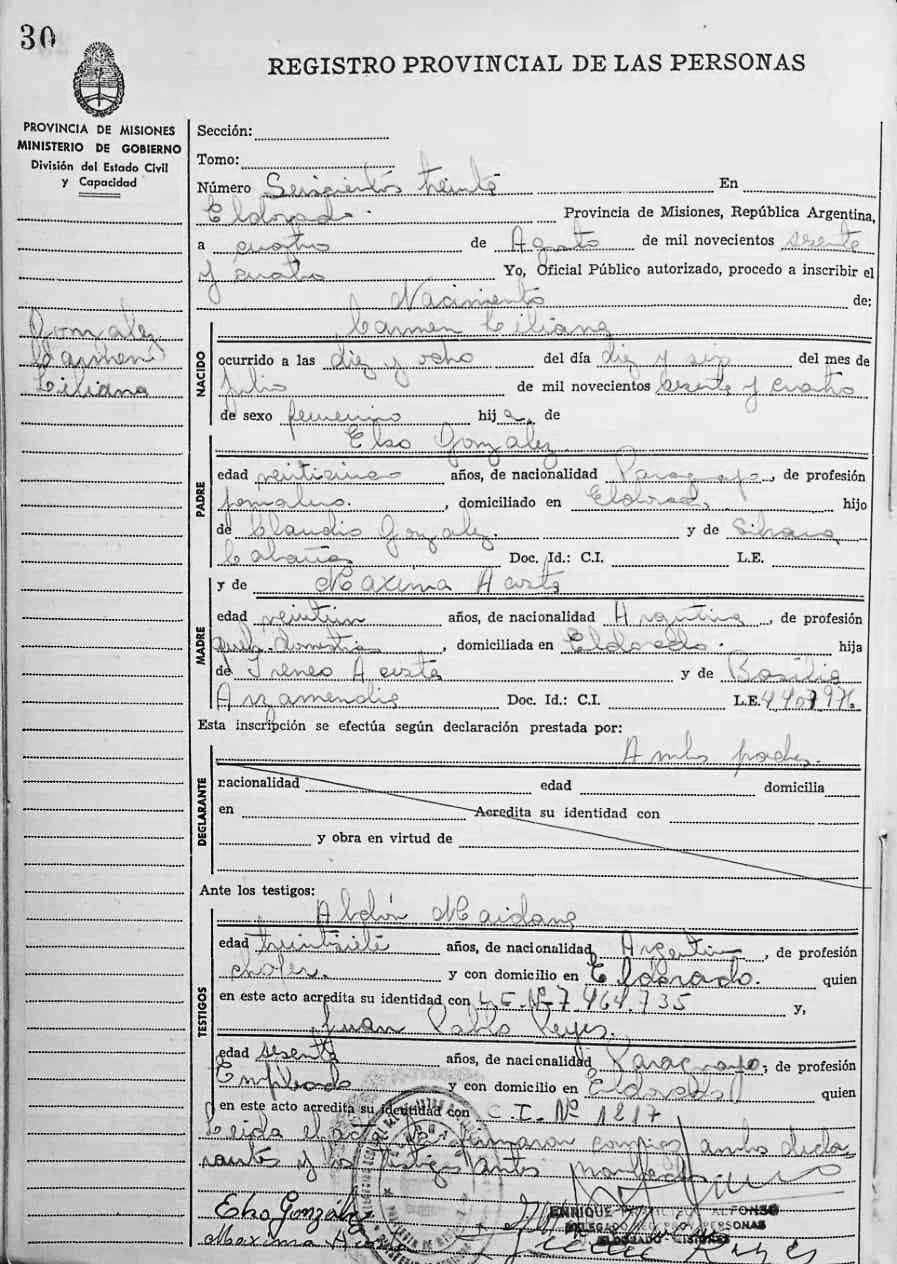 30
REGISTRO PROVINCIAL DE LAS PERSONAS
PROVINCIA DE MISIONES
MINISTERIO DE GOBIERNO
División del Estado Civil
y Capacidad
Gonzalez
Carmen
Liliana
Sección:
Tomo:
Número Seiscientos treinta En
Eldorado. Provincia de Misiones, República Argentina,
a cuatro de Agosto de mil novecientos sesenta
y cuatro Yo, Oficial Público autorizado, procedo a inscribir el
Nacimiento de:
NACIDO
Carmen Liliana
ocurrido a las diez y ocho del día diez y seis del mes de
Julio de mil novecientos sesenta y cuatro
de sexo femenino hija de
PADRE
Elso Gonzalez
edad veinticinco años, de nacionalidad Paraguayo, de profesión
jornalero. , domiciliado en Eldorado, hijo
de Claudio Gonzalez. y de Silvana
Cabañas Doc. Id.: C.I. L.E.
y de Maxima Acosta
MADRE
edad veintiun años, de nacionalidad Argentina, de profesión
domestica , domiciliada en Eldorado. hija
de Ireneo Acosta y de Basilia
Arzamendia Doc. Id.: C.I. L.E.
Esta inscripción se efectúa según declaración prestada por:
Ambos padres.
DECLARANTE
nacionalidad edad domicilia
en Acredita su identidad con
y obra en virtud de
Ante los testigos:
TESTIGOS
Abdón Maidana
edad treintisiete años, de nacionalidad Argentin , de profesión
chofer. y con domicilio en Eldorado. quien
en este acto acredita su identidad con L.E. Nº 7.464.735 y,
Juan Pablo Reyes.
edad sesenta años, de nacionalidad Paraguayo, de profesión
Empleado y con domicilio en Eldorado quien
en este acto acredita su identidad con C.I. Nº 1217
Leida el acta la firmaron conmigo ambos decla-
rantes y los testigos antes
ENRIQUE ALFONSO
DELEGADO PERSONAS
ELDORADO MISIONES
Elso Gonzáles
Maxima Acosta
Reyes